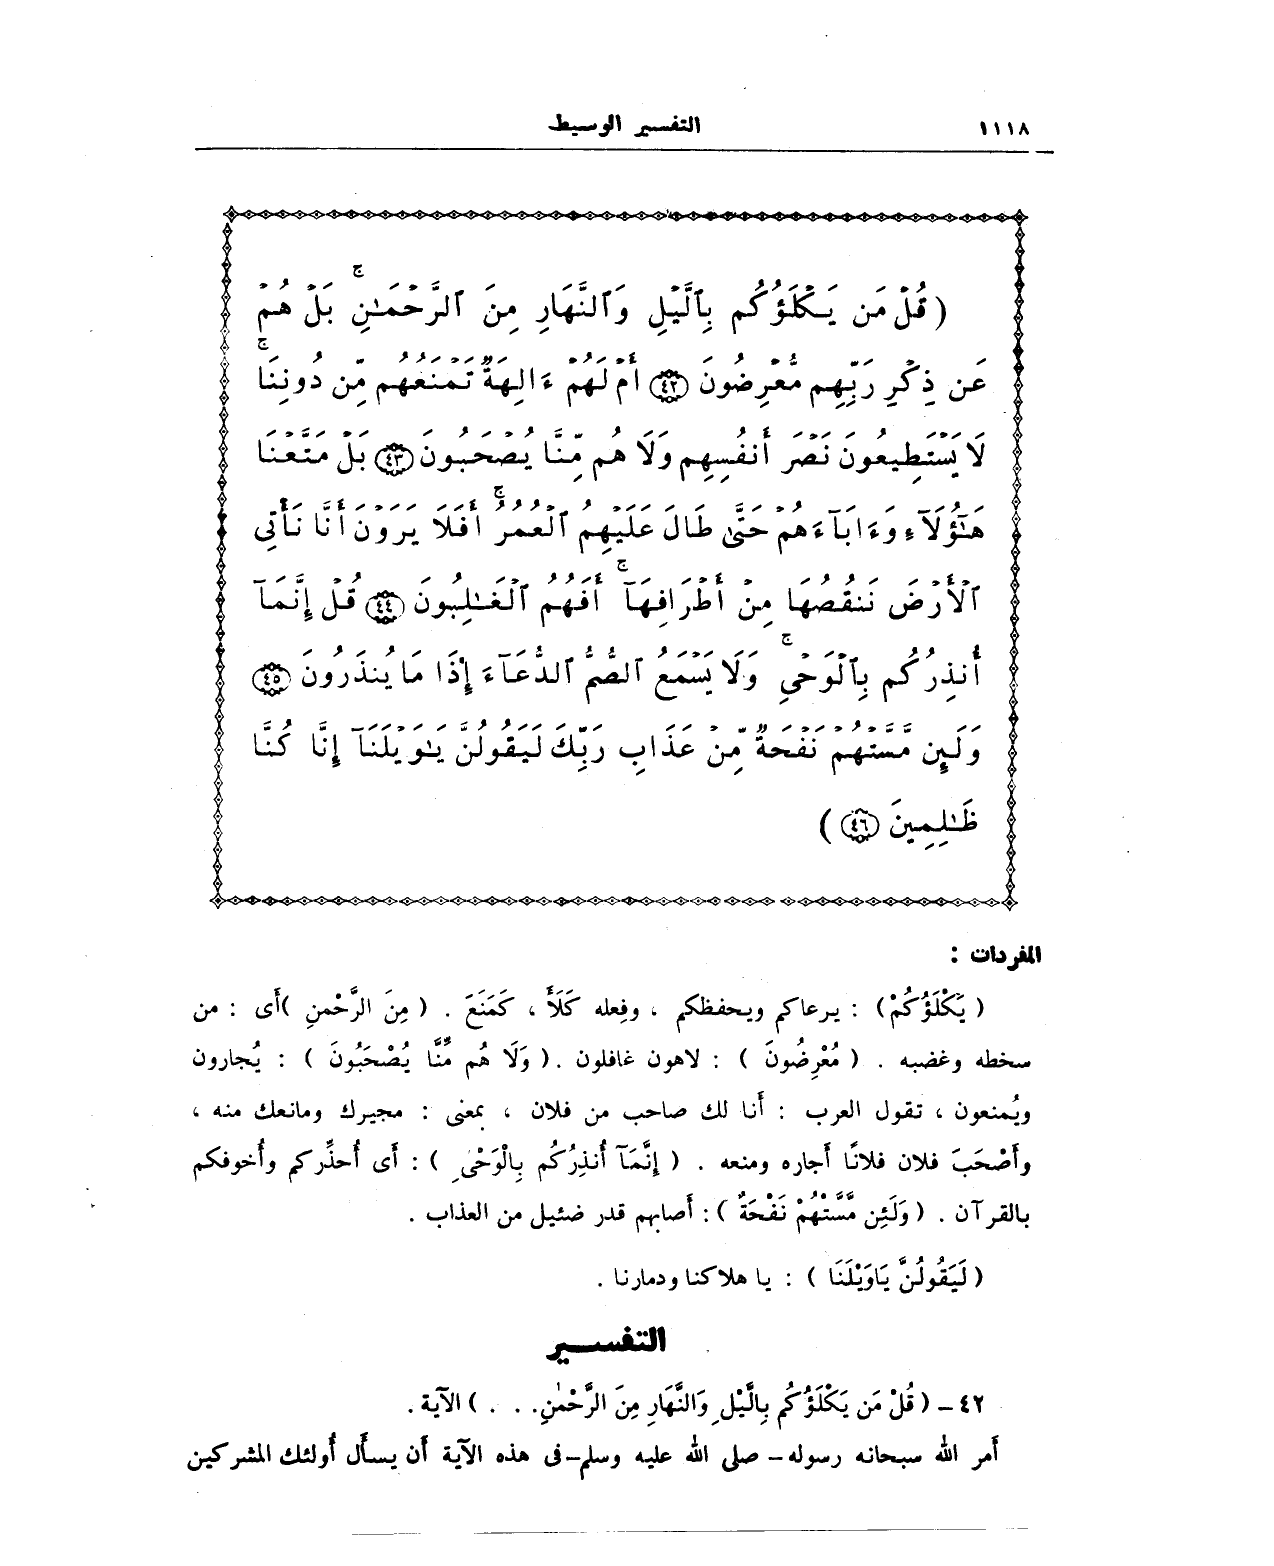 ١١١٨ التفسير الوسيط
( قُلْ مَن يَكْلَؤُكُم بِٱلَّيْلِ وَٱلنَّهَارِ مِنَ ٱلرَّحْمَـٰنِ ۚ بَلْ هُمْ
عَن ذِكْرِ رَبِّهِم مُّعْرِضُونَ ﴿٤٢﴾ أَمْ لَهُمْ ءَالِهَةٌ تَمْنَعُهُم مِّن دُونِنَا ۚ
لَا يَسْتَطِيعُونَ نَصْرَ أَنفُسِهِمْ وَلَا هُم مِّنَّا يُصْحَبُونَ ﴿٤٣﴾ بَلْ مَتَّعْنَا
هَـٰٓؤُلَآءِ وَءَابَآءَهُمْ حَتَّىٰ طَالَ عَلَيْهِمُ ٱلْعُمُرُ ۚ أَفَلَا يَرَوْنَ أَنَّا نَأْتِى
ٱلْأَرْضَ نَنقُصُهَا مِنْ أَطْرَافِهَآ ۚ أَفَهُمُ ٱلْغَـٰلِبُونَ ﴿٤٤﴾ قُلْ إِنَّمَآ
أُنذِرُكُم بِٱلْوَحْىِ ۚ وَلَا يَسْمَعُ ٱلصُّمُّ ٱلدُّعَآءَ إِذَا مَا يُنذَرُونَ ﴿٤٥﴾
وَلَئِن مَّسَّتْهُمْ نَفْحَةٌ مِّنْ عَذَابِ رَبِّكَ لَيَقُولُنَّ يَـٰوَيْلَنَآ إِنَّا كُنَّا
ظَـٰلِمِينَ ﴿٤٦﴾ )
المفردات :
( يَكْلَؤُكُمْ) : يرعاكم ويحفظكم ، وفِعله كَلَأَ ، كَمَنَعَ . ( مِنَ الرَّحْمنِ )أَى : من
سخطه وغضبه . ( مُعْرِضُونَ ) : لاهون غافلون .( وَلَا هُم مِّنَّا يُصْحَبُونَ ) : يُجارون
ويُمنعون ، تقول العرب : أَنا لك صاحب من فلان ، بمعنى : مجيرك ومانعك منه ،
وأَصْحَبَ فلان فلانًا أَجاره ومنعه . ( إِنَّمَآ أُنذِرُكُم بِالْوَحْىِ ) : أَى أُحذِّركم وأُخوفكم
بالقرآن . ( وَلَئِن مَّسَّتْهُمْ نَفْحَةٌ ) : أَصابهم قدر ضئيل من العذاب .
( لَيَقُولُنَّ يَاوَيْلَنَا ) : يا هلاكنا ودمارنا .
التفســـير
٤٢ – ( قُلْ مَن يَكْلَؤُكُم بِالَّيْلِ وَالنَّهَارِ مِنَ الرَّحْمٰنِ. . . ) الآية .
أَمر الله سبحانه رسوله – صلى الله عليه وسلم– فى هذه الآية أَن يسأَل أُولئك المشركين